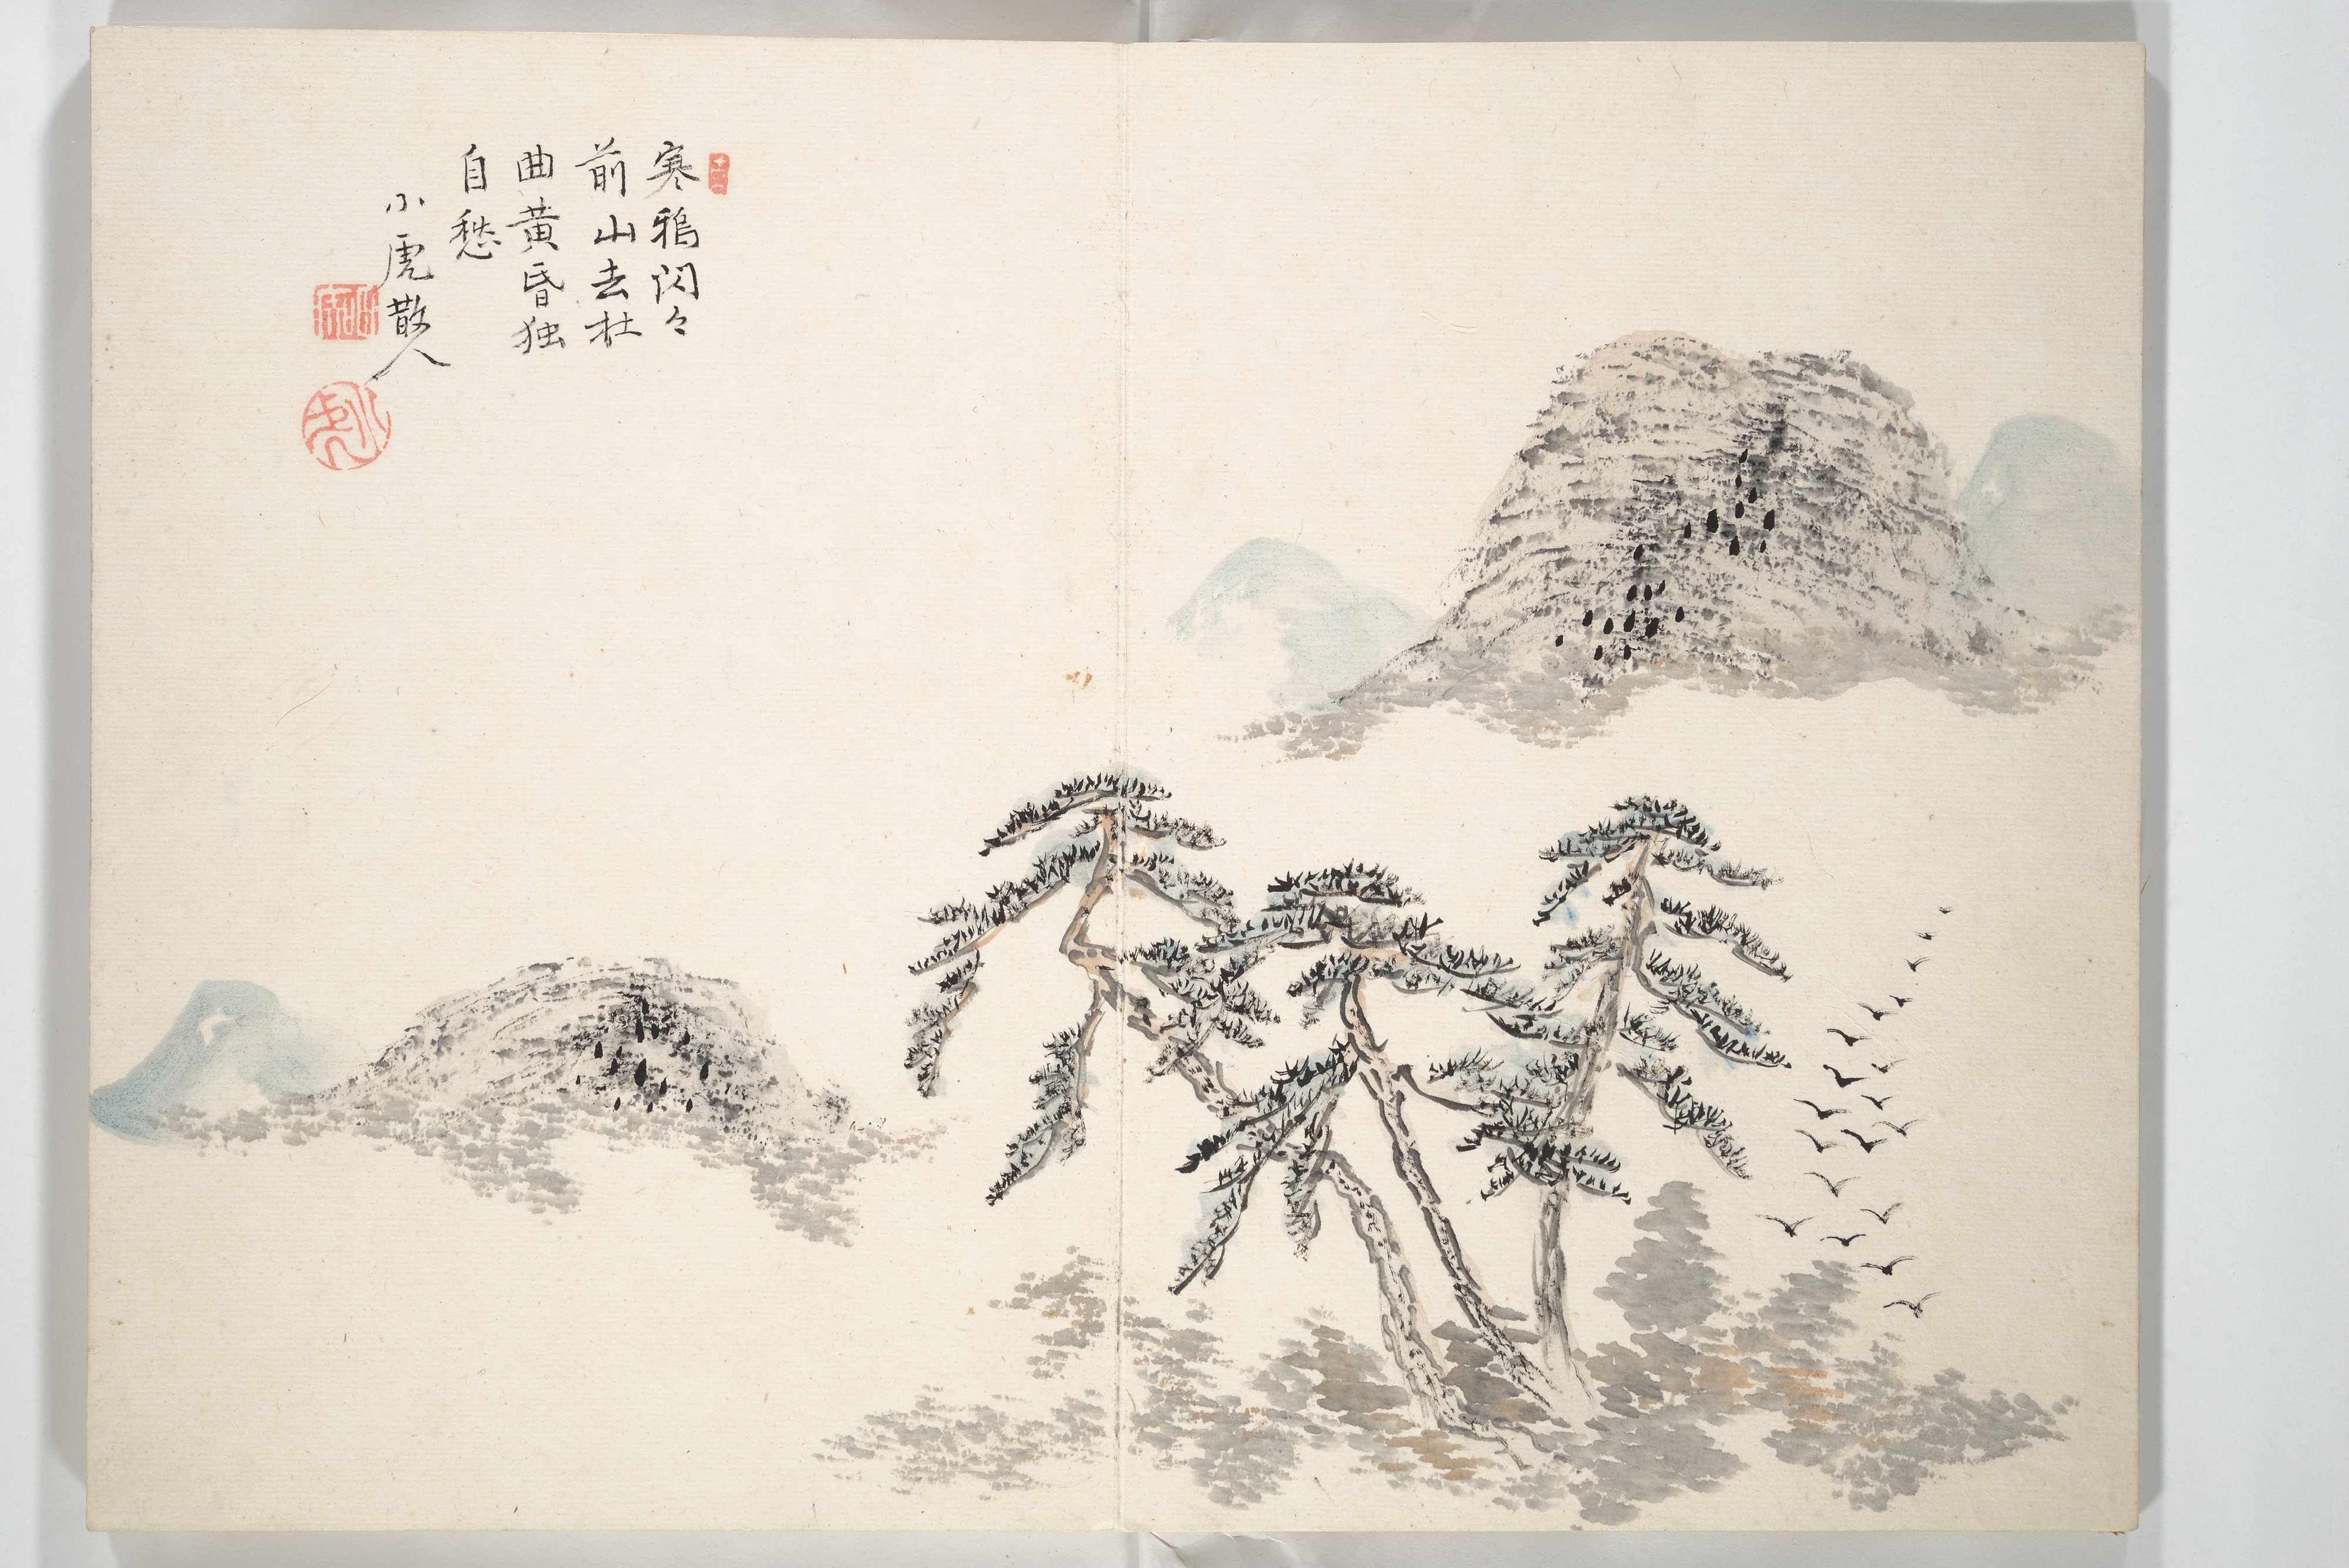 寒鴉閃々
前山去杜
曲黄昏独
自愁
小虎散人